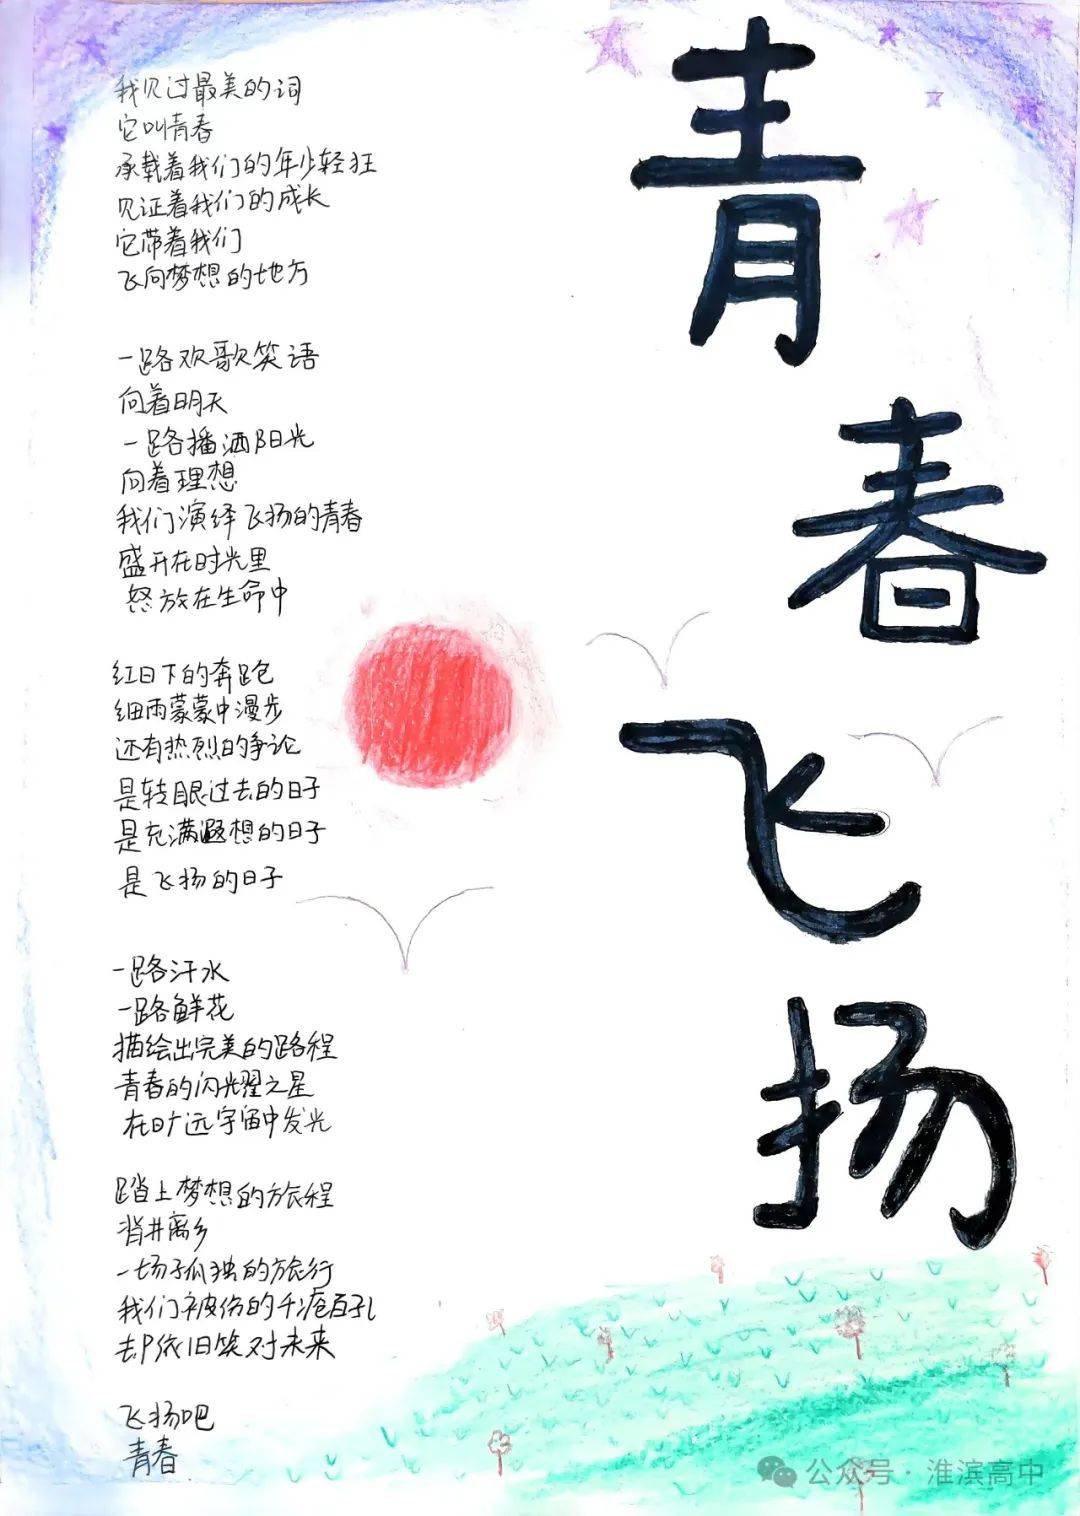 青春飞扬
我见过最美的词
它叫青春
承载着我们的年少轻狂
见证着我们的成长
它带着我们
飞向梦想的地方
一路欢歌笑语
向着明天
一路播洒阳光
向着理想
我们演绎飞扬的青春
盛开在时光里
怒放在生命中
红日下的奔跑
细雨蒙蒙中漫步
还有热烈的争论
是转眼过去的日子
是充满遐想的日子
是飞扬的日子
一路汗水
一路鲜花
描绘出完美的路程
青春的闪光耀之星
在旷远宇宙中发光
踏上梦想的旅程
背井离乡
一场孤独的旅行
我们被伤的千疮百孔
却依旧笑对未来
飞扬吧
青春
公众号·淮滨高中